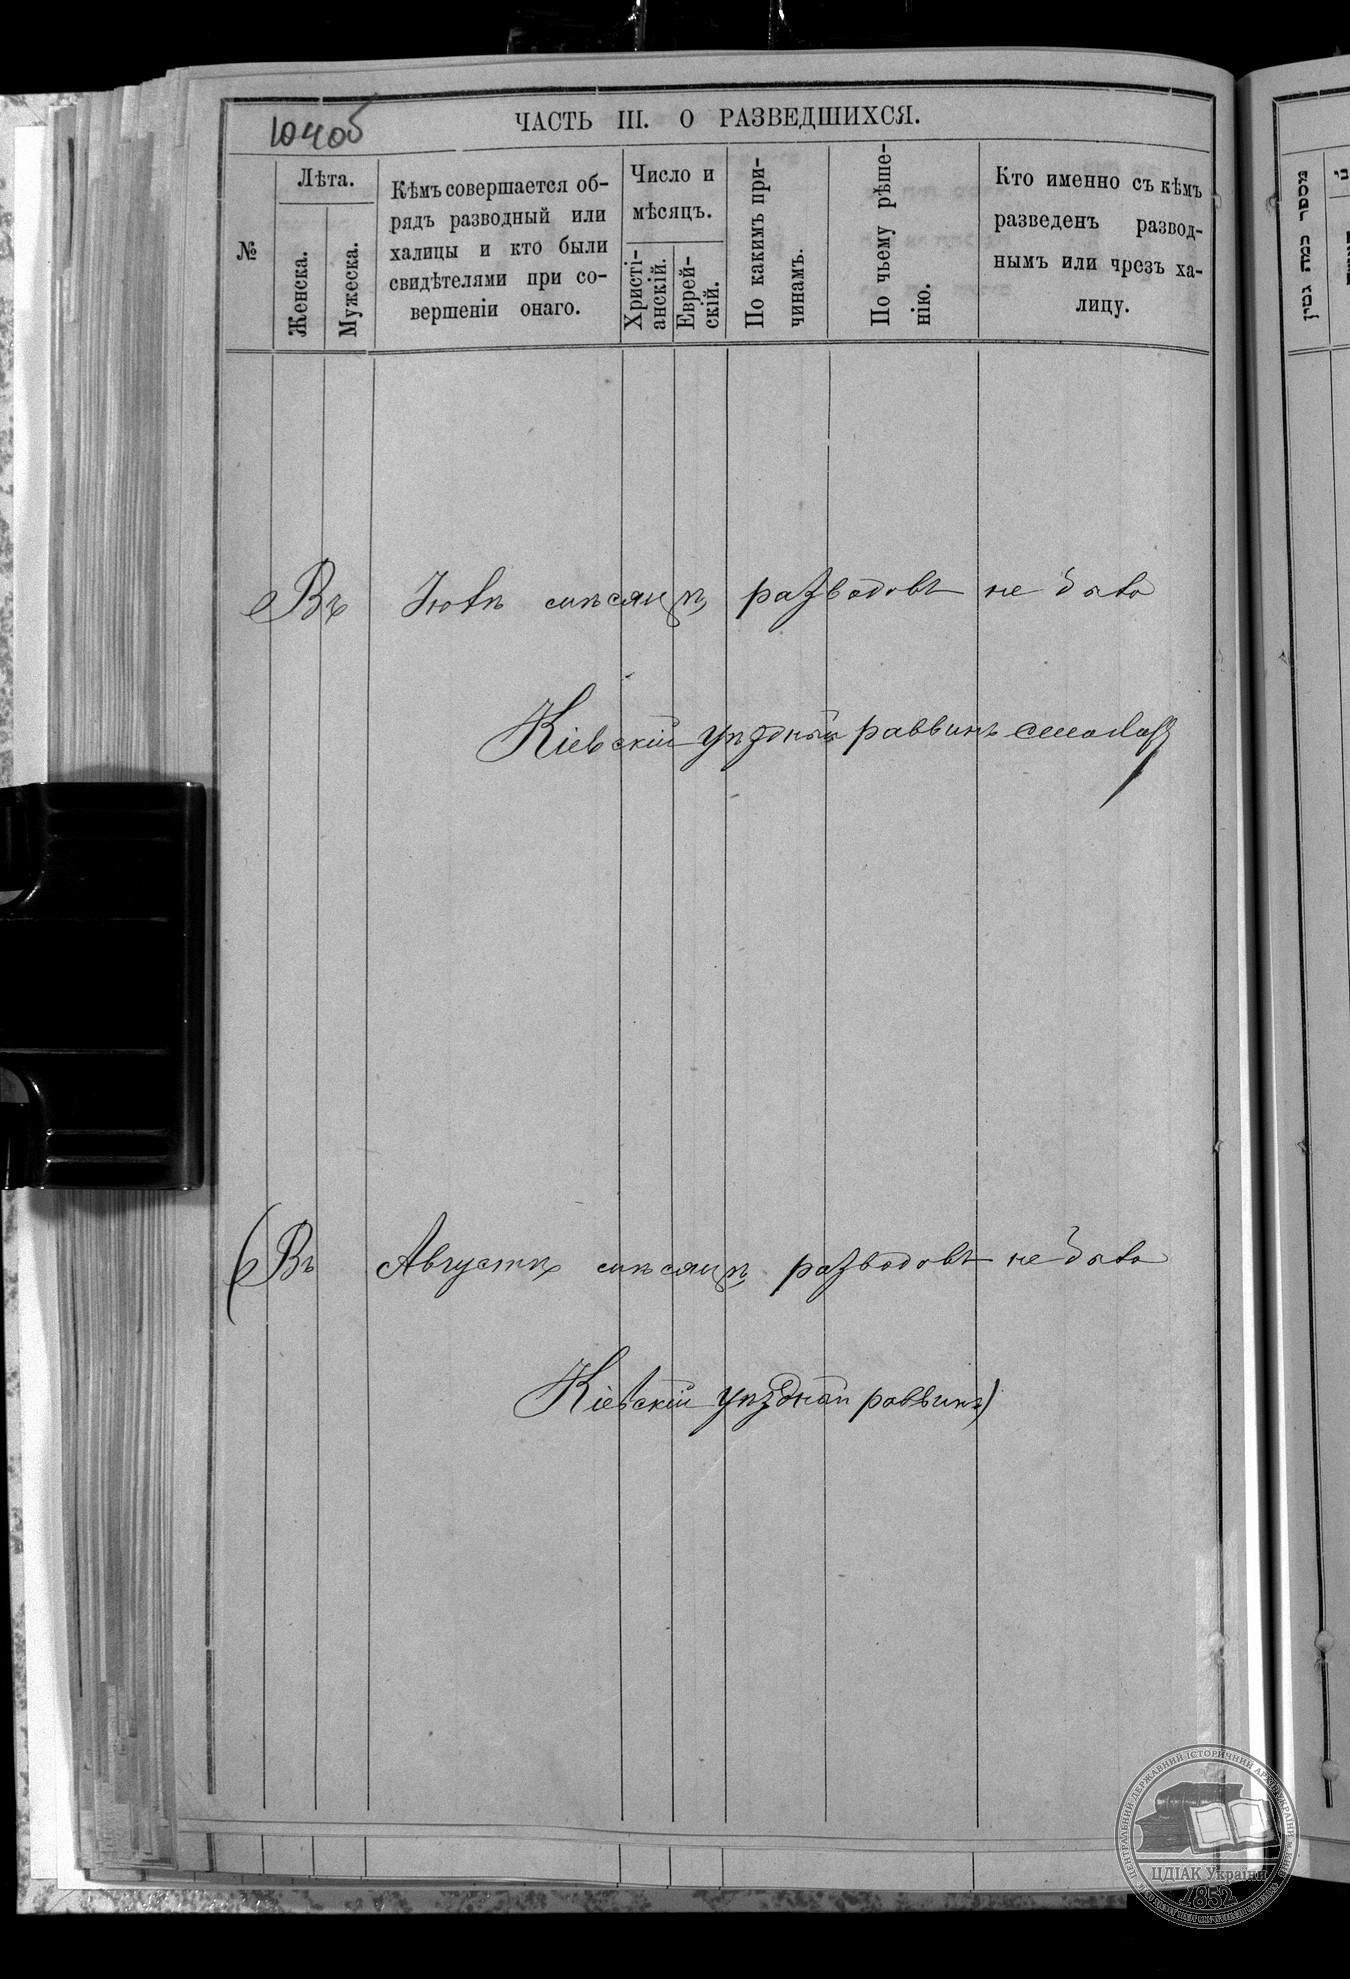 104об
ЧАСТЬ III. О РАЗВЕДШИХСЯ.
№
Лѣта.
Женска.
Мужеска.
Кѣмъ совершается об-
рядъ разводный или
халицы и кто были
свидѣтелями при со-
вершеніи онаго.
Число и
мѣсяцъ.
Христі-
анскій.
Еврей-
скій.
По какимъ при-
чинамъ.
По чьему рѣше-
нію.
Кто именно съ кѣмъ
разведенъ развод-
нымъ или чрезъ ха-
лицу.
Въ Іюлѣ мѣсяцѣ разводовъ не было
Кіевскій уѣздный раввинъ
(Въ Августѣ мѣсяцѣ разводовъ не было
Кіевскій уѣздный раввинъ)
מספר כמה גטין
ЦЕНТРАЛЬНИЙ ДЕРЖАВНИЙ ІСТОРИЧНИЙ АРХІВ УКРАЇНИ, М. КИЇВ
ЦДІАК України
1852